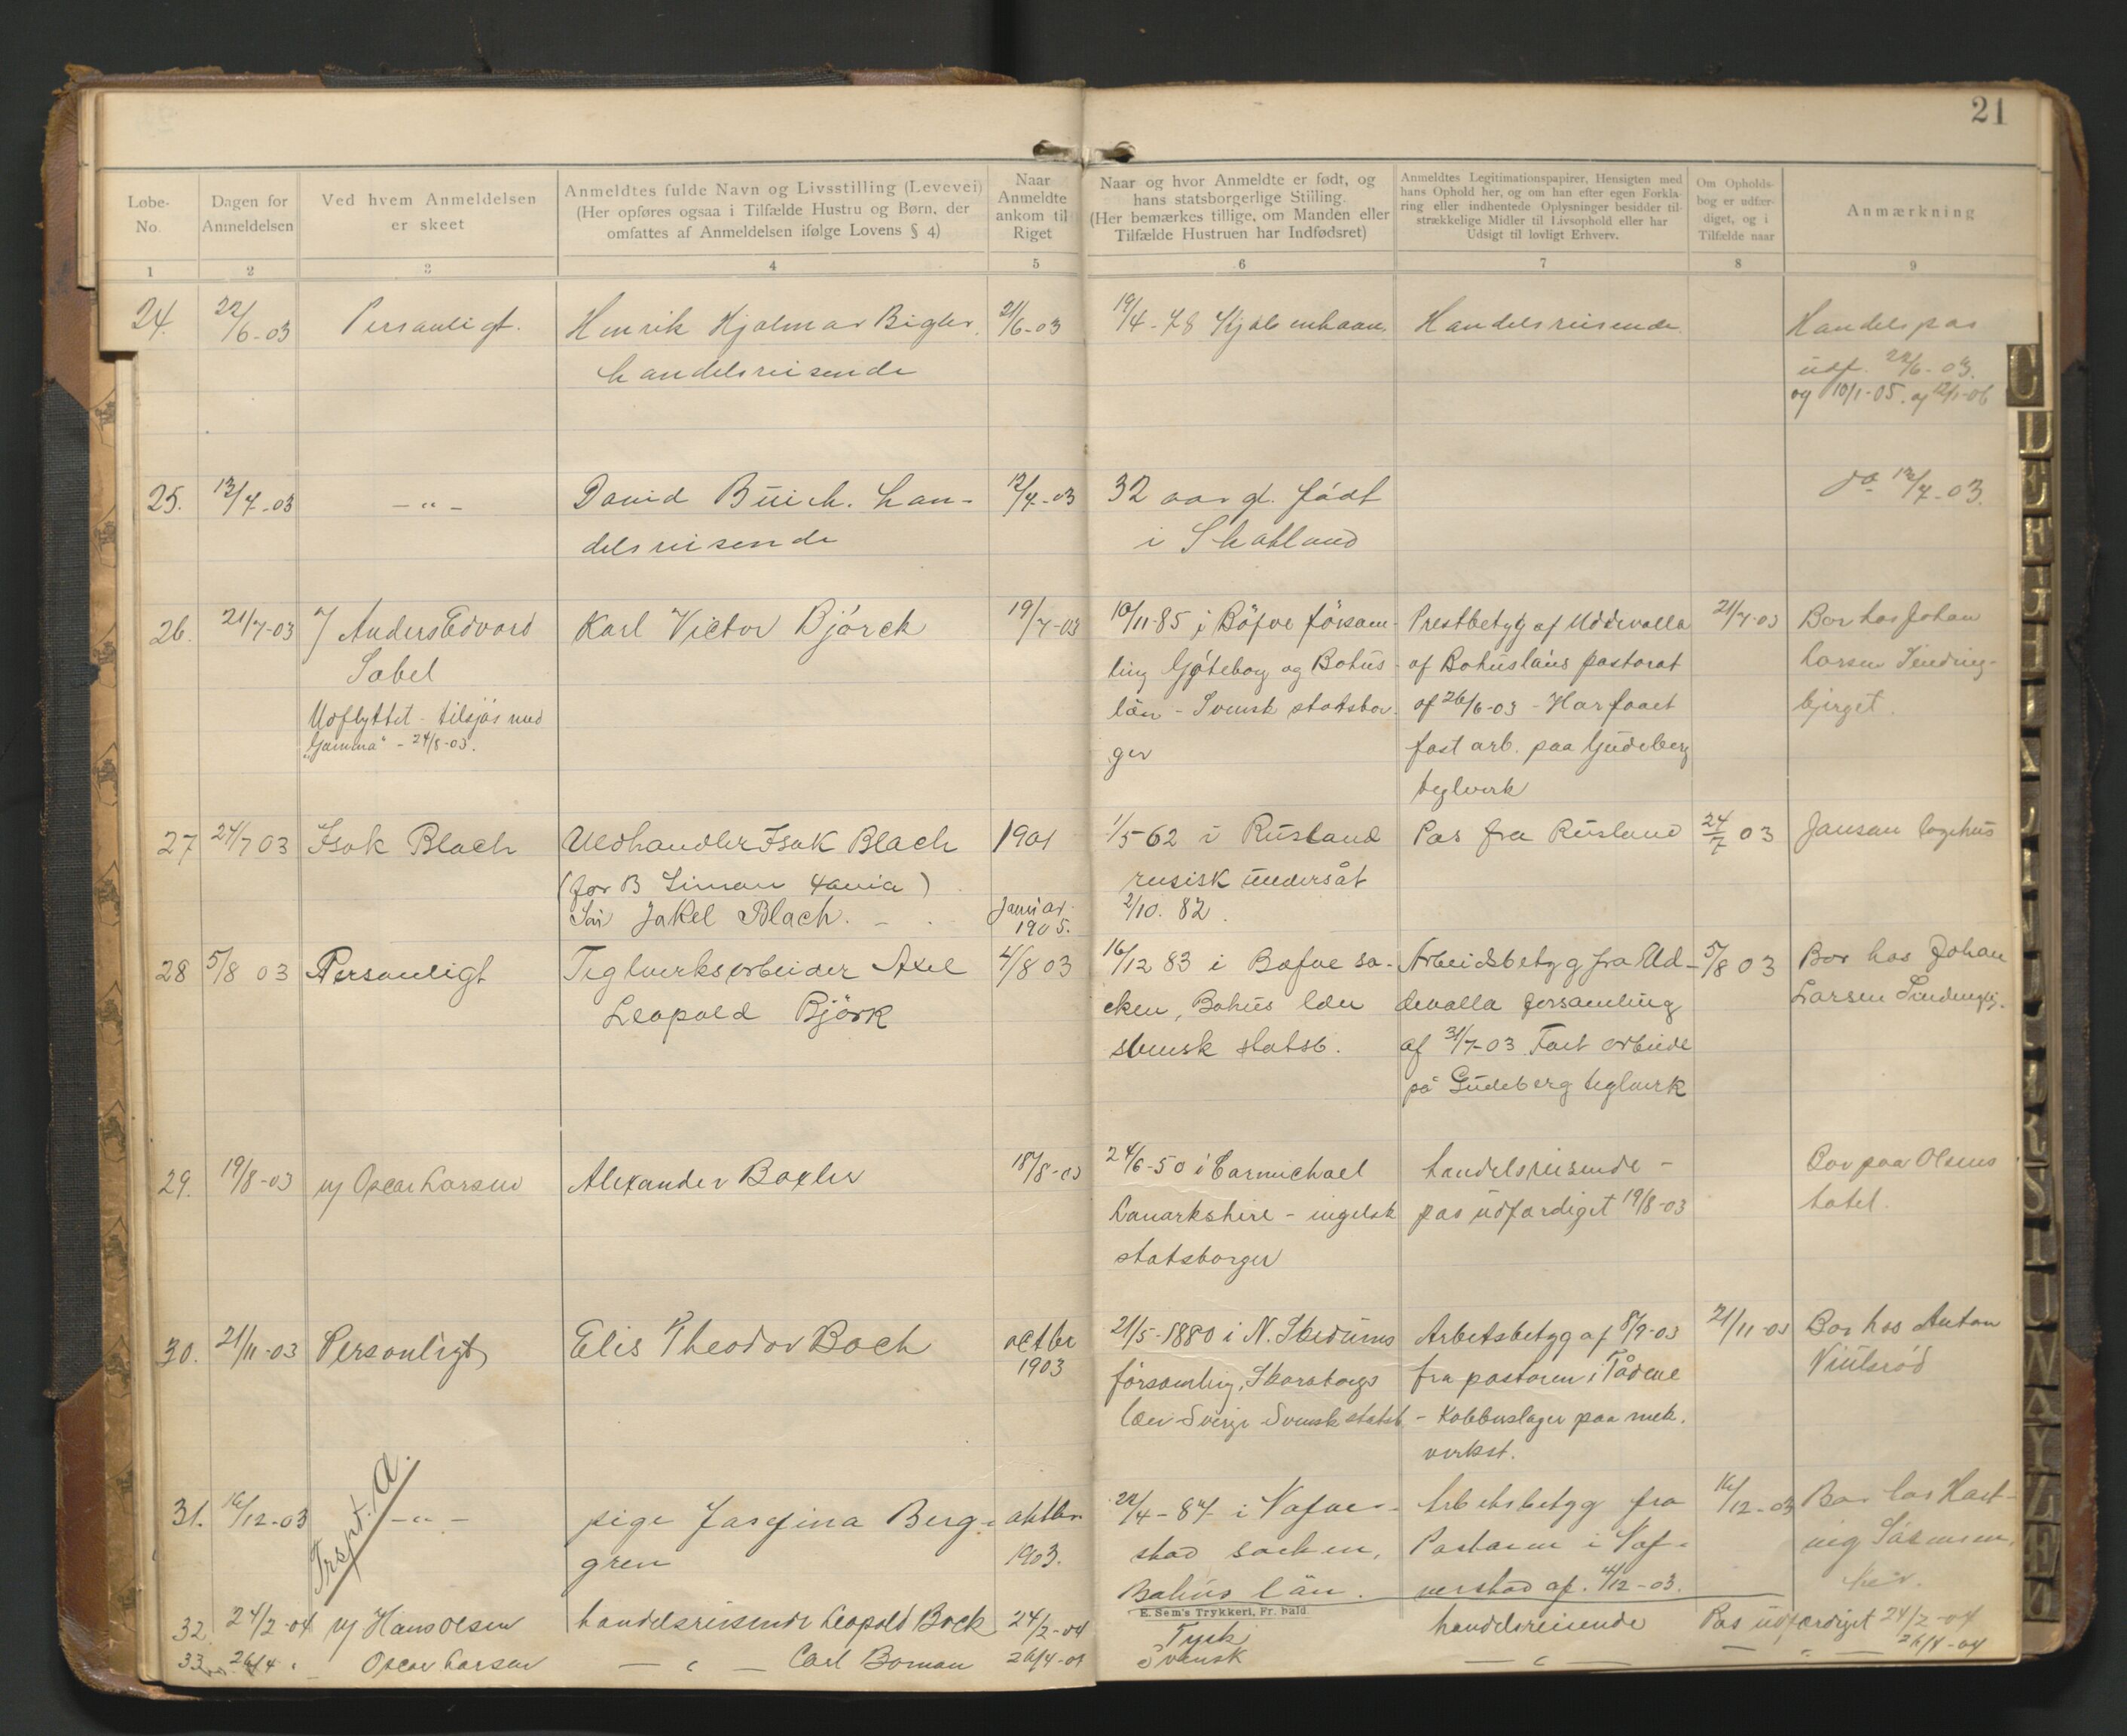 21
Løbe-
No.
Dagen for
Anmeldelsen
Ved hvem Anmeldelsen
er skeet
Anmeldtes fulde Navn og Livsstilling (Levevei)
(Her opføres ogsaa i Tilfælde Hustru og Børn, der
omfattes af Anmeldelsen ifølge Lovens § 4)
Naar
Anmeldte
ankom til
Riget
Naar og hvor Anmeldte er født, og
hans statsborgerlige Stilling.
(Her bemærkes tillige, om Manden eller
Tilfælde Hustruen har Indfødsret)
Anmeldtes Legitimationspapirer, Hensigten med
hans Ophold her, og om han efter egen Forkla-
ring eller indhentede Oplysninger besidder til-
strækkelige Midler til Livsophold eller har
Udsigt til lovligt Erhverv.
Om Opholds-
bog er udfær-
diget, og i
Tilfælde naar
Anmærkning
1 2 3 4 5 6 7 8 9
24. 22/6-03 Personligt. Henrik Hjalmar Bigler. 21/6-03 19/4-78 Kjøbenhavn. Handelsreisende. Handelspas
handelsreisende udf. 22/6-03.
og 10/1-05. og 12/1-06
25. 13/7-03 - " - David Buich. han- 12/7-03 32 aar gl. født do. 13/7-03.
delsreisende i Skotland
26. 21/7-03 v/ Anders Edvard Karl Victor Björck 19/7-03 10/11-85 i Böfve försam- Prestbetyg af Uddevalla 21/7-03 Bor hos Johan
Sabel ling Göteborg og Bohus- af Bohusläns pastorat Larsen
Udflyttet - tilsjøs med län - Svensk statsbor- af 26/6-03 - Har faaet bjerget.
"Gamma" - 24/8-03. ger fast arb. paa Gudeberg
teglverk
27 24/7 03 Isak Blach Uldhandler Isak Blach 1901 1/5-62 i Rusland Pas fra Rusland 24/7 03 Jansan logihus
(for B Simon ) rusisk undersåt
Søn Jakel Blach. - Januar 2/10. 82.
1905.
28 5/8 03 Personligt Teglverksarbeider Axel 4/8 03 16/12 83 i Bofve so- Arbeidsbetyg fra Ud- 5/8 03 Bor hos Johan
Leopold Björk cken, Bohus län devalla forsamling Larsen
svensk statsb. af 31/7-03 Fast arbeide
på Gudeberg teglverk
29. 19/8-03 v/ Oscar Larsen Alexander Baxler 18/8-03 24/6-50 i Carmichael handelsreisende - Bor paa Olsens
Lanarkshire - engelsk pas udfærdiget 19/8-03 hotel.
statsborger
30. 21/11-03 Personligt Elis Theodor Boch octbr 21/5-1880 i N. försomling, Skaraborgs Arbetsbetyg af 8/9-03 21/11-03 Bor hos Anton
1903 län Sverige Svensk statsb fra pastoren i Tådene
- Kobberslager paa mek.
verkst.
Trspt. A.
31. 16/12-03 - " - pige Josefina Berg- oktbr. 22/4-87 i Nafver- Arbetsbetyg fra 16/12-03 Bor hos Hart-
gren 1903. stad socken, Pastoren i Naf- vig Sörensen,
Bahus län. verstad af. 4/12-03.
E. Sem's Trykkeri, Fr.hald.
32. 24/2-04 v/ Hans Olsen handelsreisende Leopold Bock 24/2-04 Tysk handelsreisende Pas udfærdiget 24/2-04
33. 26/4 " Oscar Larsen - " - Carl Boman 26/4-04 Svensk - " - - " - 26/4-04